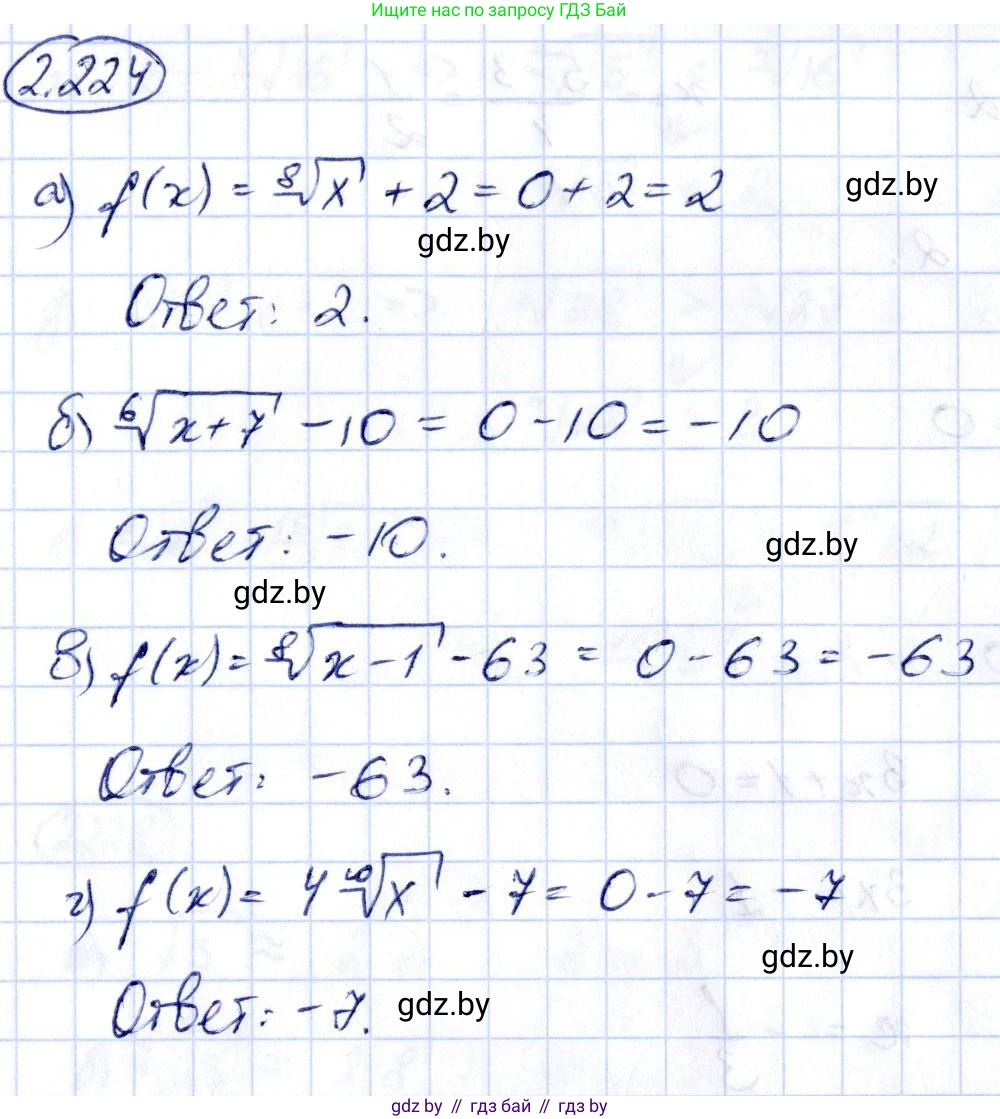 Ищите нас по запросу ГДЗ Бай
2.224
а) f(x) = ⁸√x + 2 = 0 + 2 = 2
gdz.by
gdz.by
Ответ: 2.
б) ⁶√(x+7) - 10 = 0 - 10 = -10
Ответ: -10.
gdz.by
gdz.by
в) f(x) = ⁸√(x-1) - 63 = 0 - 63 = -63
Ответ: -63.
г) f(x) = 4 ¹⁰√x - 7 = 0 - 7 = -7
gdz.by
Ответ: -7.
gdz.by
gdz.by // гдз бай // gdz.by